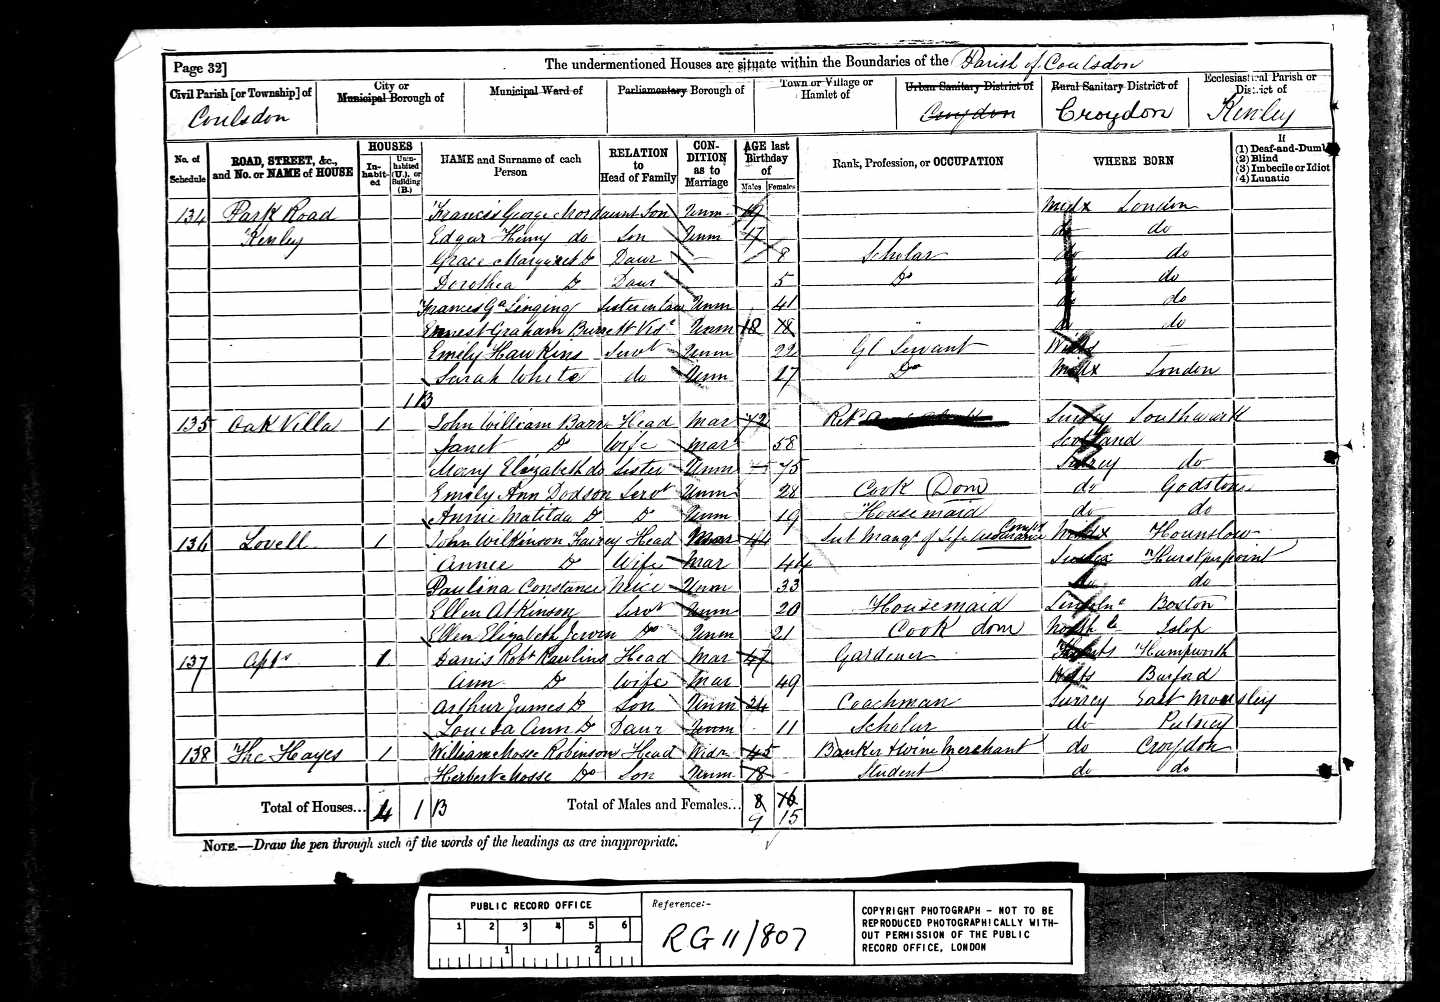 Page 32]
The undermentioned Houses are situate within the Boundaries of the Parish of Coulsdon
Civil Parish [or Township] of
Coulsdon
City or
Municipal Borough of
Municipal Ward of
Parliamentary Borough of
Town or Village or
Hamlet of
Urban Sanitary District of
Croydon
Rural Sanitary District of
Croydon
Ecclesiastical Parish or
District of
Kenley
No. of Schedule
ROAD, STREET, &c., and No. or NAME of HOUSE
HOUSES
In-habit-ed
Unin-habited (U.), or Building (B.)
NAME and Surname of each Person
RELATION to Head of Family
CON-DITION as to Marriage
AGE last Birthday of
Males Females
Rank, Profession, or OCCUPATION
WHERE BORN
If
(1) Deaf-and-Dumb
(2) Blind
(3) Imbecile or Idiot
(4) Lunatic
134 Park Road Francis George Mordaunt Son Unm 19 Middx London
Kenley Edgar Henry do Son Unm 17 do do
Grace Margaret Do Daur — 8 Scholar do do
Dorothea Do Daur 5 Do do do
Frances Ga Singing Sister in law Unm 41 do do
Ernest Graham Burrett Visr Unm 18 18 do do
Emily Hawkins Servt Unm 22 Gl Servant Wilts —
Sarah White do Unm 17 Do Middx London
1 B
135 Oak Villa 1 John William Barr Head Mar 72 Retd Surrey Southwark
Janet Do Wife Mar 58 Scotland
Mary Elizabeth do Sister Unm 75 75 Surrey do
Emily Ann Dodson Servt Unm 28 Cook Dom do Godstone
Annie Matilda Do Do Unm 19 Housemaid do do
136 Lovell 1 John Wilkinson Fairey Head Mar 44 Sub Mangr of Life Assurance Compy Middx Hounslow
Annee Do Wife Mar 44 Sussex Hurstpierpoint
Paulina Constance Neice Unm 33 do do
Ellen Atkinson Servt Unm 20 Housemaid Lincolne Boston
Ellen Elizabeth Jerven Do Unm 21 Cook dom North Islip
137 Apts 1 Danis Robt Rawlins Head Mar 47 Gardener Humpworth
Ann Do Wife Mar 49 Burford
Arthur James Do Son Unm 24 Coachman Surrey East Moulsley
Louisa Ann Do Daur Unm 11 Scholar do Putney
138 The Hayes 1 William Mosse Robinson Head Widr 45 Banker & Wine Merchant do Croydon
Herbert Mosse Do Son Unm 18 Student do do
Total of Houses... 4 1 B
Total of Males and Females... 8 16
9 15
NOTE.—Draw the pen through such of the words of the headings as are inappropriate.
PUBLIC RECORD OFFICE
1 2 3 4 5 6
1 2
Reference:-
RG 11/807
COPYRIGHT PHOTOGRAPH - NOT TO BE
REPRODUCED PHOTOGRAPHICALLY WITH-
OUT PERMISSION OF THE PUBLIC
RECORD OFFICE, LONDON